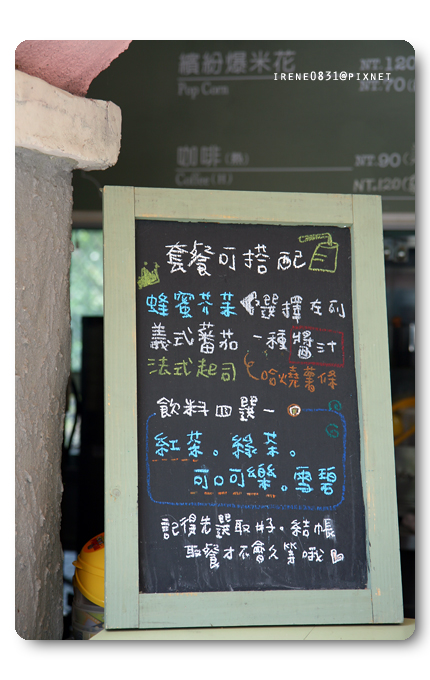 繽紛爆米花 NT.120
IRENE0831@PIXNET
Pop Corn NT.70
咖啡(熱) NT.90
Coffee(H) NT.120
套餐可搭配
蜂蜜芥茉 選擇左列
義式蕃茄 一種醬汁
法式起司 哈燒薯條
飲料四選一
紅茶。綠茶。
可口可樂。雪碧
記得先選取好。結帳
取餐才不會久等哦